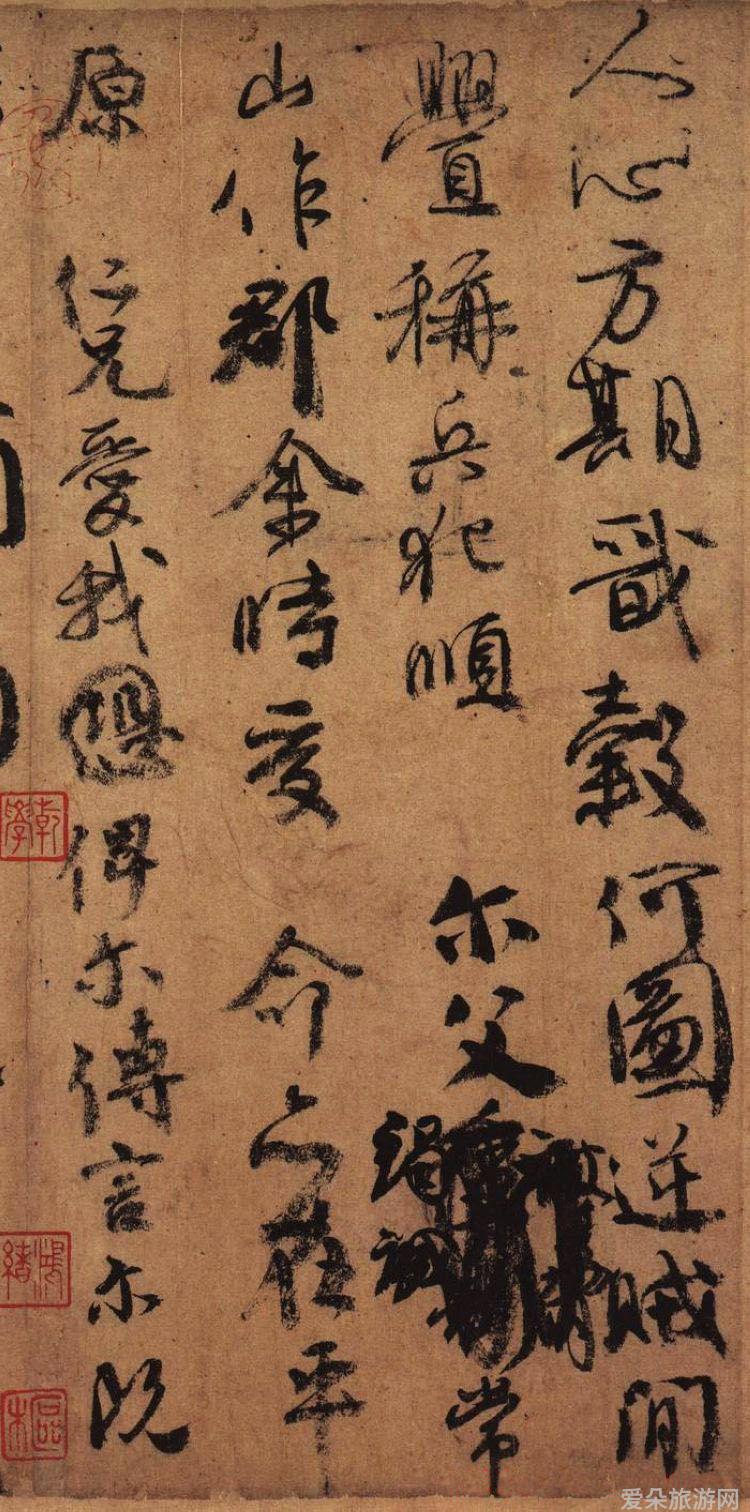 人心方期戩穀何圖逆賊閒
釁稱兵犯順　尔父竭誠常
山作郡余時受　命亦在平
原　仁兄愛我恐俾尔傳言尔既
乾學
爱朵旅游网